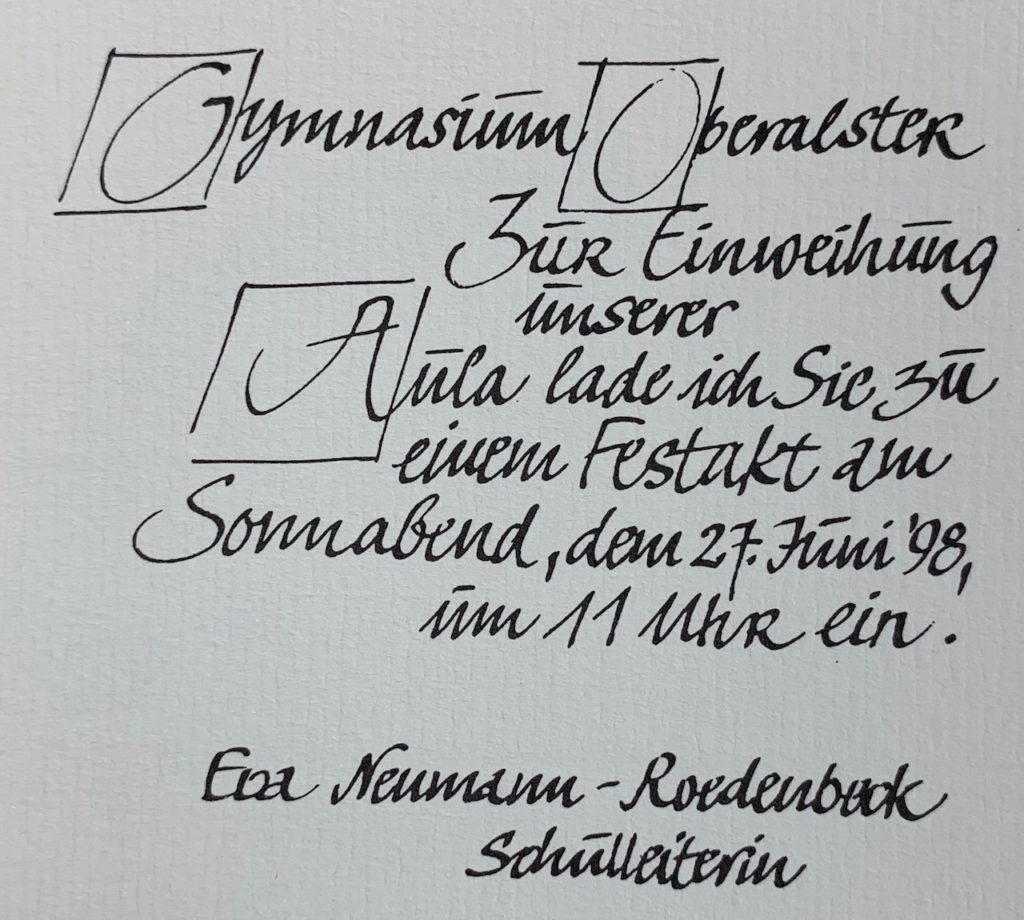 Gymnasium Oberalster
Zur Einweihung
unserer
Aula lade ich Sie zu
einem Festakt am
Sonnabend, dem 27. Juni '98,
um 11 Uhr ein.
Eva Neumann-Roedenbeck
Schulleiterin